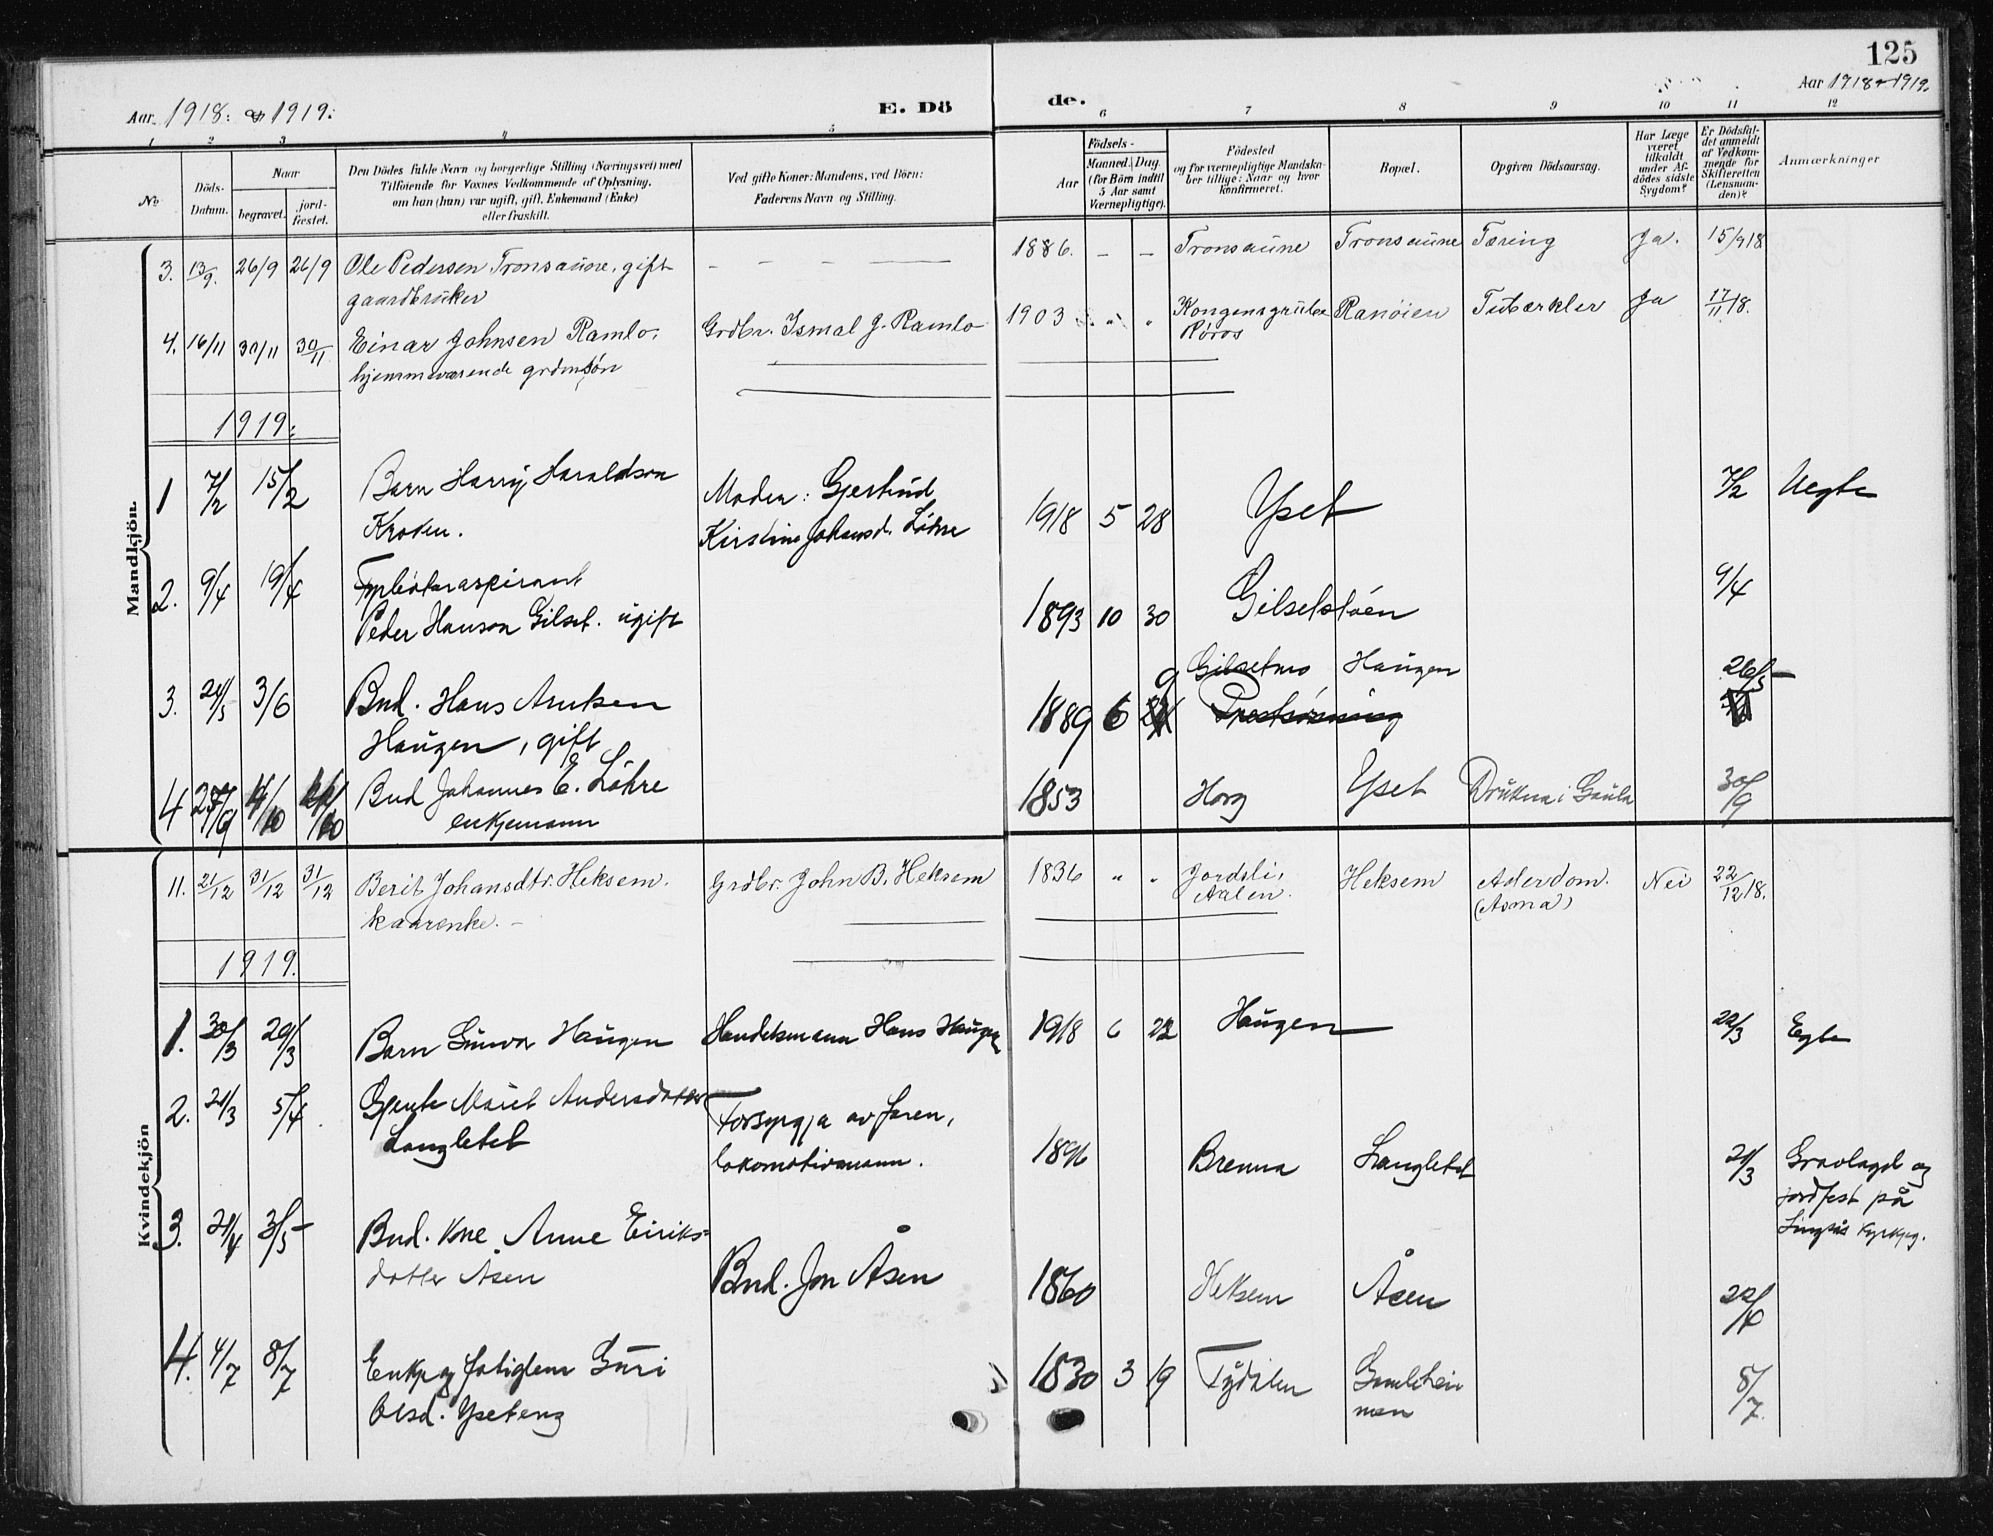 125
Aar 1918: og 1919:
E. Döde.
Aar 1918 + 1919.
1 2 3 4 5 6 7 8 9 10 11 12
No
Döds-Datum.
Naar
begravet.
jord-fæstet.
Den Dödes fulde Navn og borgerlige Stilling (Næringsvei) med
Tilföiende for Voxnes Vedkommende af Oplysning,
om han (hun) var ugift, gift, Enkemand (Enke)
eller fraskilt.
Ved gifte Koner: Mandens, ved Börn:
Faderens Navn og Stilling.
Födsels-
Aar
Maaned. Dag.
(for Börn indtil
5 Aar samt
Værnepligtige).
Födested
og for værnepligtige Mandska-
ber tillige: Naar og hvor
konfirmeret.
Bopæl.
Opgiven Dödsaarsag.
Har Læge
været
tilkaldt
under Af-
dödes sidste
Sygdom?
Er Dödsfal-
det anmeldt
af Vedkom-
mende for
Skifteretten
(Lensman-
den)?
Anmærkninger
Mandkjön.
3. 13/9. 26/9 26/9 Ole Pedersen Tronsaune, gift — — — — 1886. — — Tronsaune Tronsaune Tæring Ja. 15/9 18
gaardbruker
4. 16/11 30/11 30/11 Einar Johnsen Ramlo. Grdbr. Ismal J. Ramlo 1903 " " Kongensgrube Ranøien Tuberkler Ja 17/11 18.
Røros
hjemmeværende grdmsøn
1919:
1 7/2 15/2 Barn Harry Haraldson Moder: Gjertrud 1918 5 28 Yset 7/2 Uegte
Kroken. Kirstine Johansd. Løhre
2. 9/4 19/4 aspirant 1893 10 30 Gilsetstøen 9/4
Peder Hanson Gilset. ugift
3. 24/5 3/6 Bnd. Hans Arntsen 1889 6 9 Gilsetmo Haugen 26/5
Haugen, gift
4 27/9 4/10 Bnd Johannes E. Løhre 1853 Horg Yset Drukna i Gaula 30/9
enkjemann
Kvindekjön
11. 21/12 31/12 31/12 Berit Johansdtr. Heksem. Grdbr. John B. Heksem 1836 " " Jordsli, Heksem Alderdom. Nei 22/12 18.
kaarenke. Aalen. (Asma)
1919.
1. 20/3 29/3 Barn Gunvor Haugen Handelsmann Hans Haugen 1918 6 22 Haugen 22/3 Egte
2. 21/3 5/4 Gjente Marit Andersdotter Forsyrgja av faren, 1896 Brenna Langletet 21/3 Gravlagd og
Langletet lokomotivmann. jordfest på
Singsås kyrkjeg.
3. 21/4 3/5 Bnd. kne Anne Eiriks= Bnd. Jon Åsen 1860 Heksem Åsen 22/4
dotter Åsen
4. 4/7 8/7 Enkje og fatiglem Guri 1830 3 19 Tydalen 8/7
Olsd. Yseteng